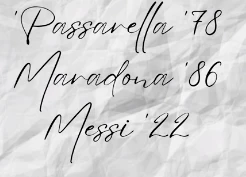 'Passarella '78
Maradona '86
Messi '22